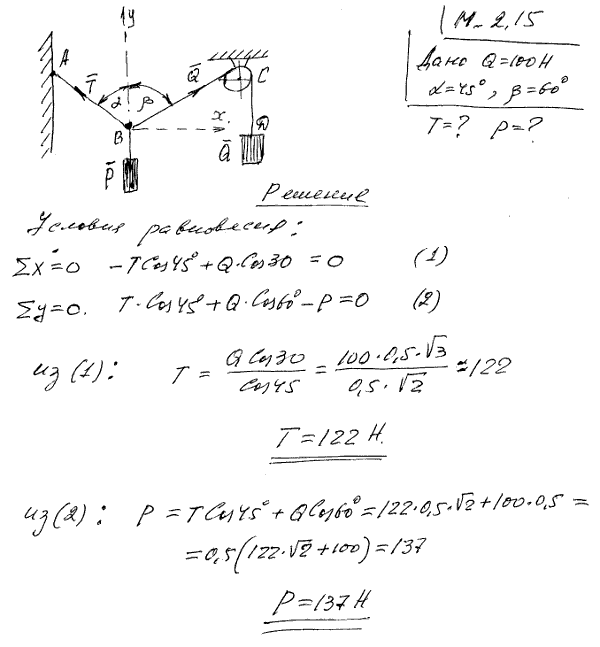 M-2,15
Дано Q=100Н
α=45°, β=60°
T=? P=?
y
A
T̄
α
β
Q̄
C
B
x
D
P̄
Q̄
Решение
Условия равновесия:
Σx=0 -TCos45°+Q·Cos30=0 (1)
Σy=0. T·Cos45°+Q·Cos60°-P=0 (2)
из(1): T = QCos30/Cos45 = 100·0,5·√3/0,5·√2 ≈122
T=122 Н.
из(2): P = TCos45°+QCos60°=122·0,5·√2+100·0,5=
=0,5(122·√2+100)=137
P=137Н